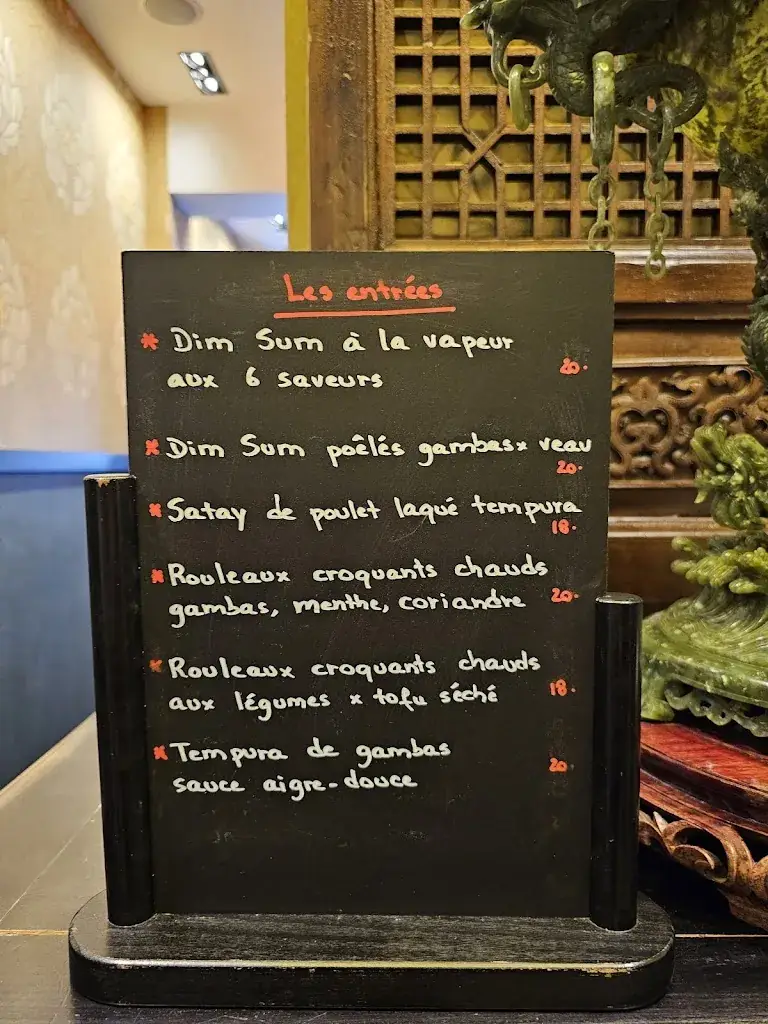 Les entrées
* Dim Sum à la vapeur
aux 6 saveurs 20.
* Dim Sum poêlés gambas x veau
20.
* Satay de poulet laqué tempura
18.
* Rouleaux croquants chauds
gambas, menthe, coriandre 20.
* Rouleaux croquants chauds
aux légumes x tofu séché 18.
* Tempura de gambas
sauce aigre-douce 20.